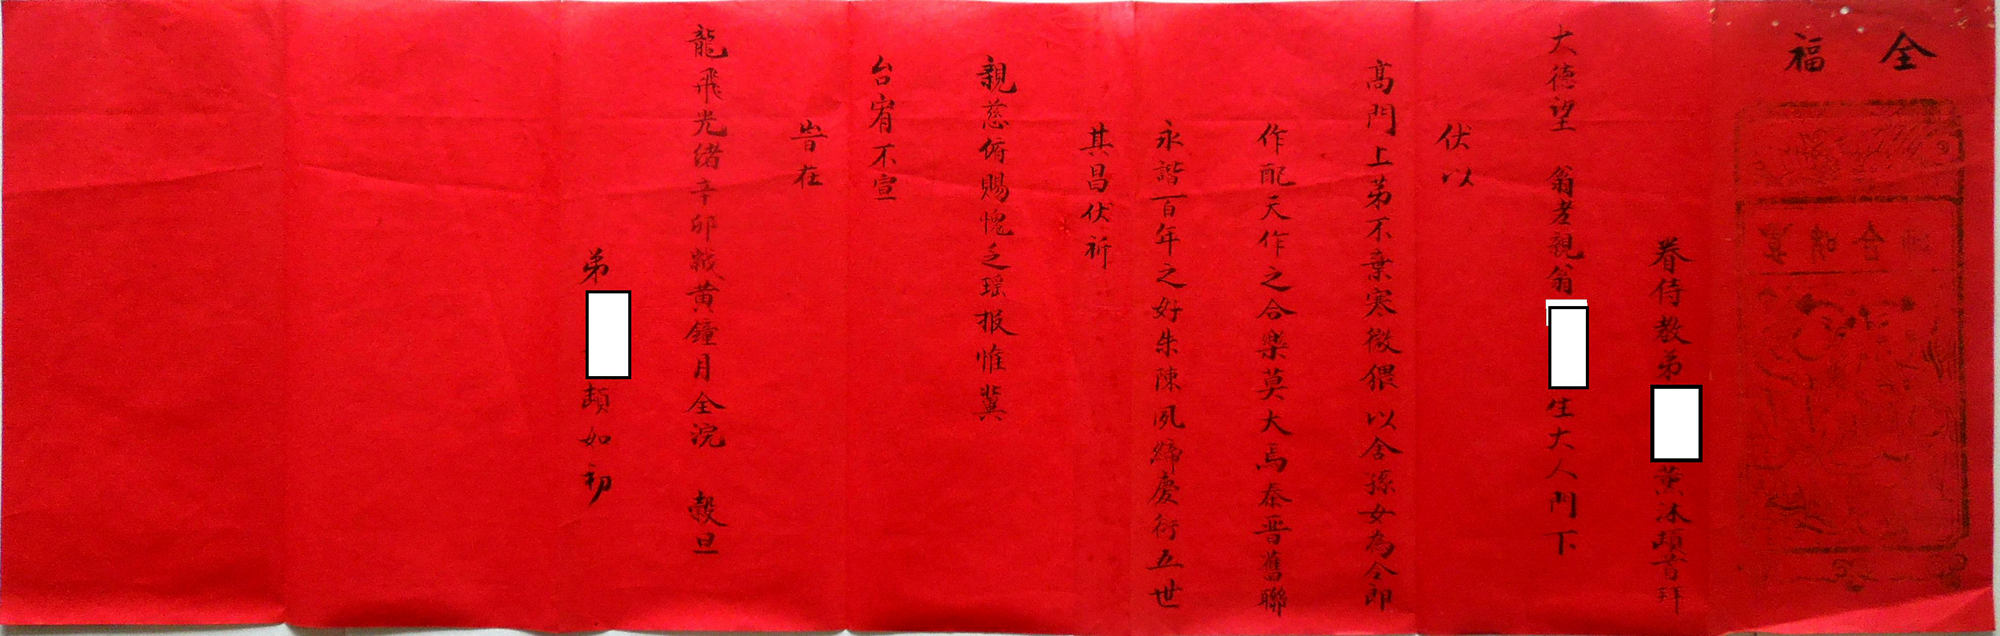 全福
眷侍教弟 薰沐頓首拜
大德望 翁老親翁 生大人門下
伏以
高門上第不棄寒微猥以舍孫女為令郎
作配天作之合樂莫大焉秦晉舊聯
永諧百年之好朱陳夙締慶衍五世
其昌伏祈
親慈俯賜愧乏瑶报惟冀
台宥不宣
旹在
龍飛光绪辛卯歲黄鐘月全浣 穀旦
弟 頓如初